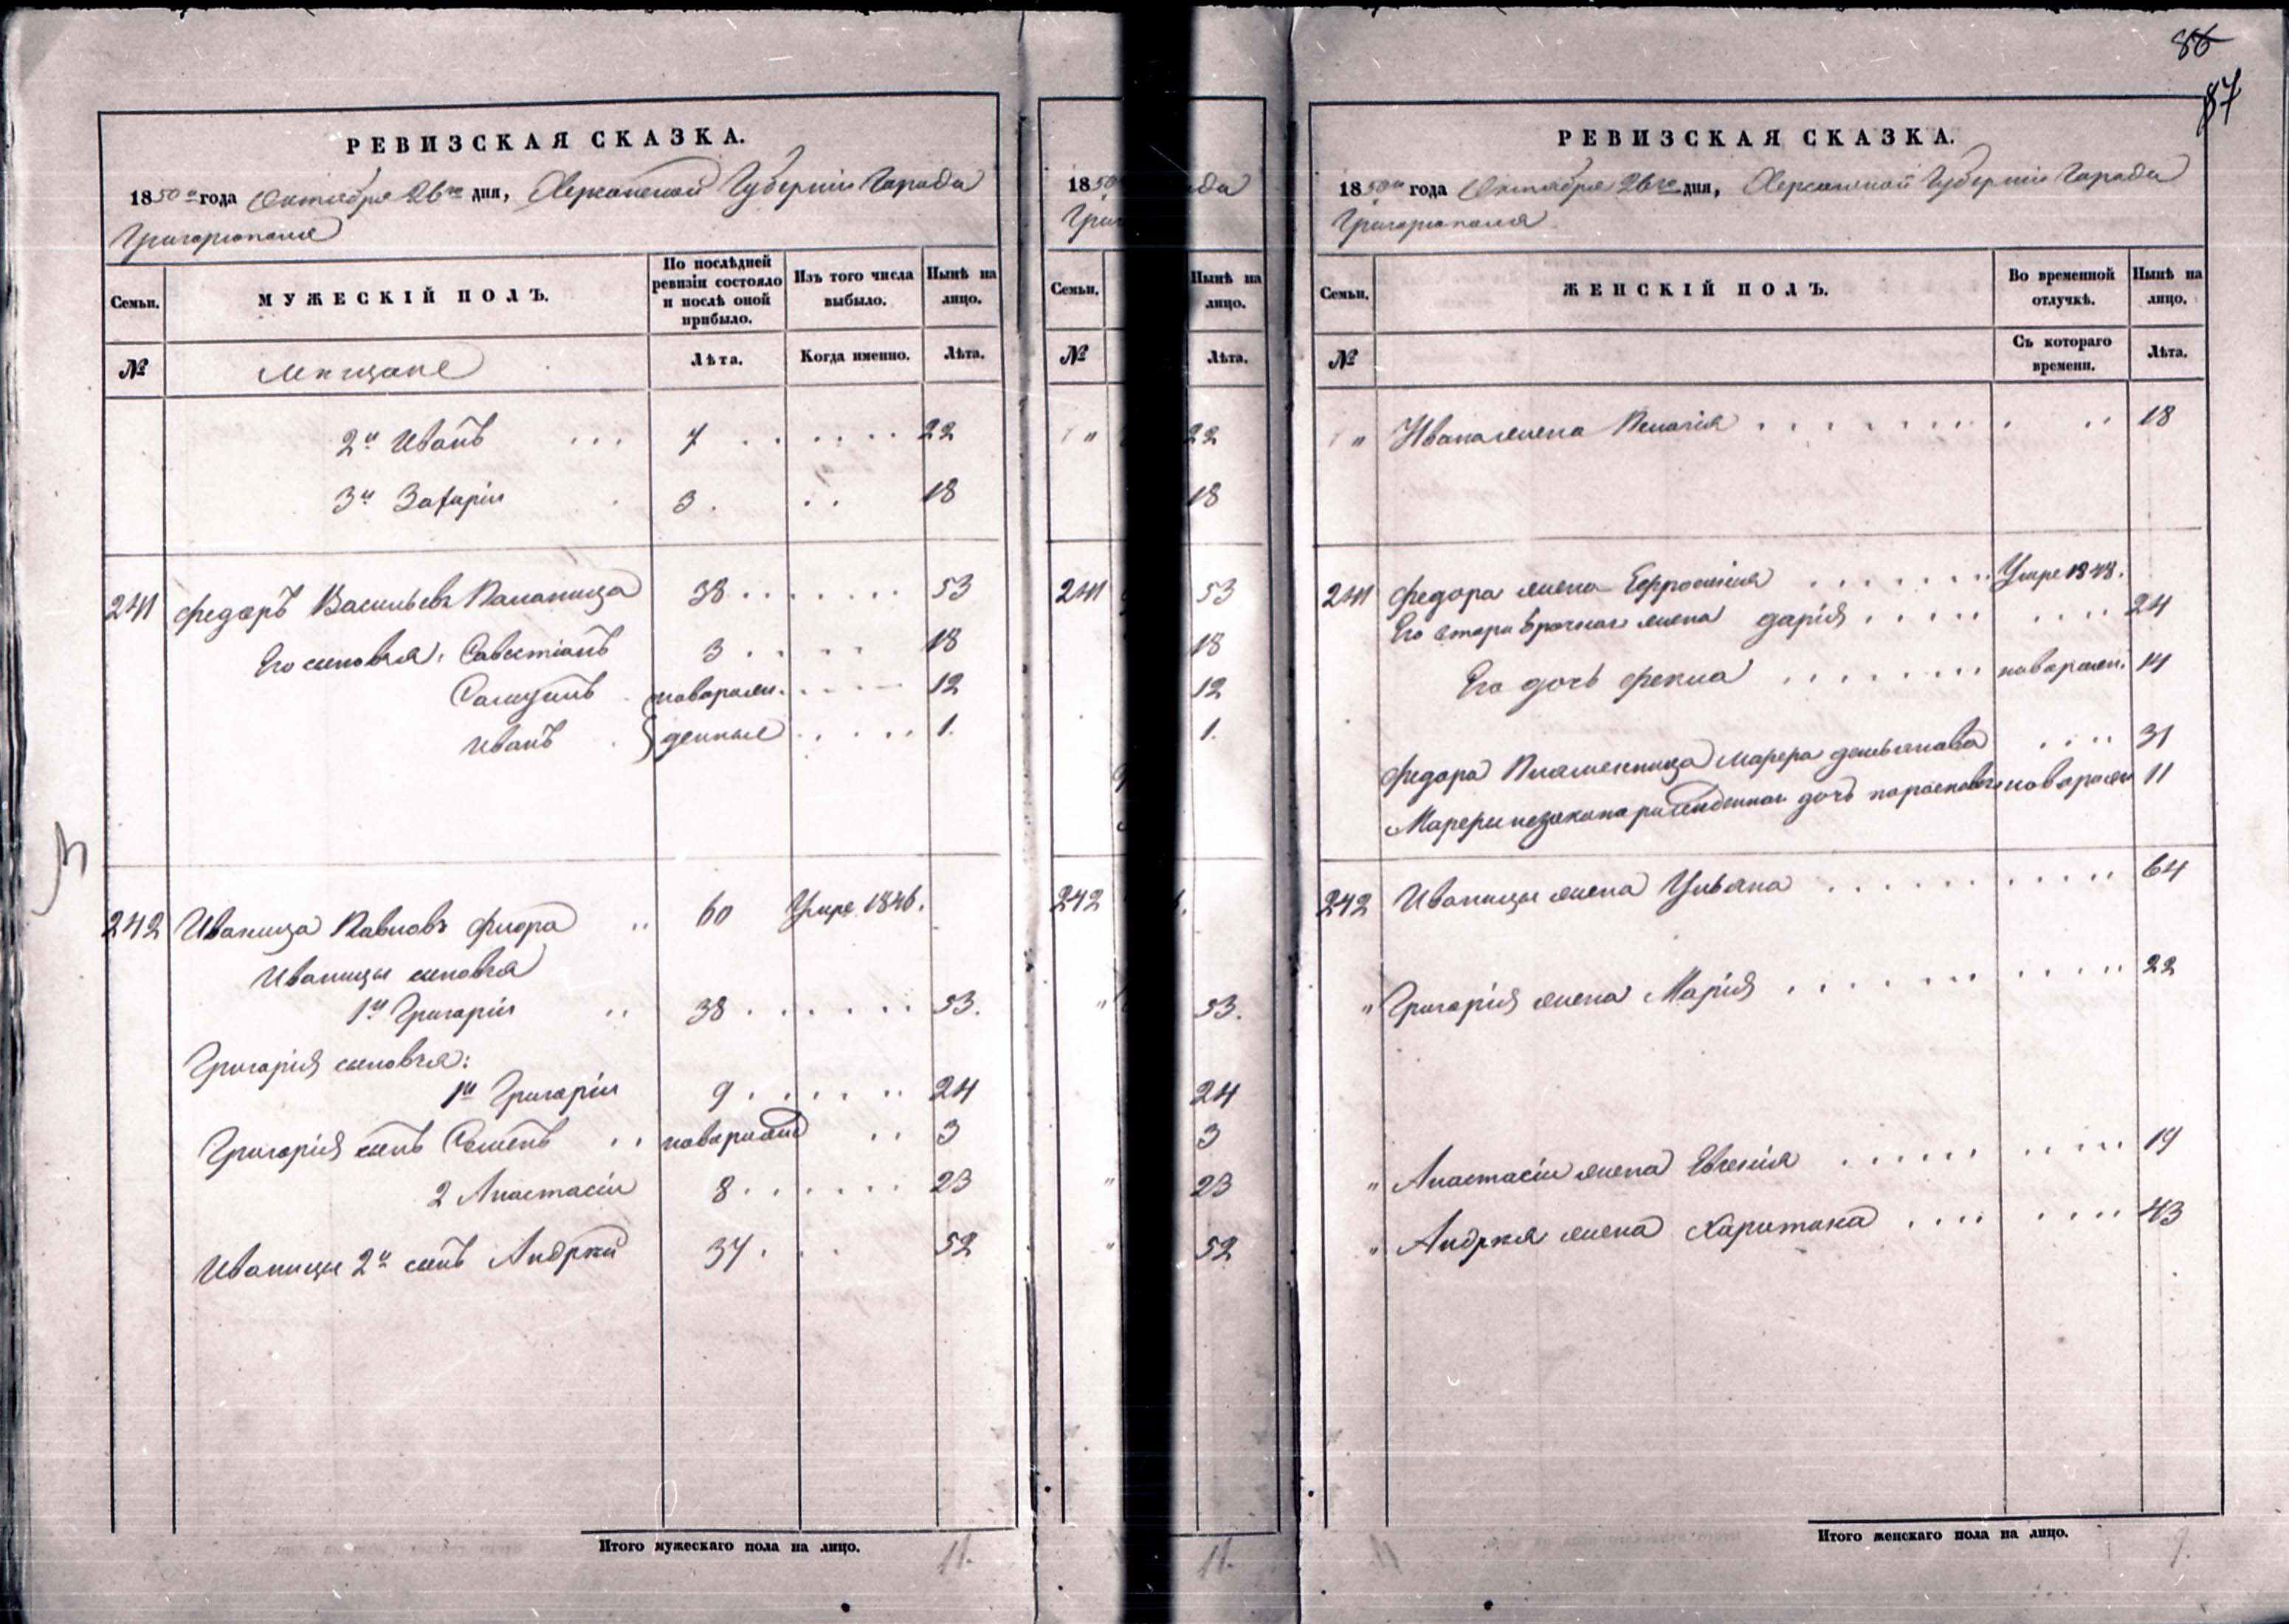 86
87
РЕВИЗСКАЯ СКАЗКА.
1850го года Октября 26го дня, Херсонской Губерніи Города
Григоріополя
Семьи.
МУЖЕСКІЙ ПОЛЪ.
По послѣдней ревизіи состояло и послѣ оной прибыло.
Изъ того числа выбыло.
Нынѣ на лицо.
№
Мещане
Лѣта.
Когда именно.
Лѣта.
2й Иванъ 7 22
3й Захарій 3 18
241 Федоръ Васильевъ Паланица 38 53
Его сыновья: Савостіанъ 3 18
новорож- 12
Иванъ денные 1
242 Иваница Павловъ Флора 60 Умре 1846.
Иваницы сыновья
1й Григорій 38 53.
Григорія сыновья:
1й Григорій 9 24
Григорія сынъ Семенъ 3
2 Анастасій 8 23
Иваницы 2й сынъ Андрѣй 37 52
Итого мужескаго пола на лицо. 11.
1850 ода
Григ
Семьи. Нынѣ на лицо.
№ Лѣта.
" 22
18
241 53
18
12
1.
242
" 53.
24
3
" 23
" 52
11.
РЕВИЗСКАЯ СКАЗКА.
1850го года Октября 26го дня, Херсонской Губерніи Города
Григоріополя
Семьи.
ЖЕНСКІЙ ПОЛЪ.
Во временной отлучкѣ.
Нынѣ на лицо.
№
Съ котораго времени.
Лѣта.
" Ивана жена Пелагія 18
241 Федора жена Ефросинія Умре 1848.
Его второбрачная жена Дарія 24
Его дочь Фекла новорожд. 14
Федора Племенница Марера Демьянова 31
Мареры незаконорожденная дочь Парасковія новорожд 11
242 Иваницы жена Ульяна 64
" Григорія жена Марія 22
" Анастасія жена Евгенія 19
" Андрѣя жена Харитина 43
Итого женскаго пола на лицо. 9.